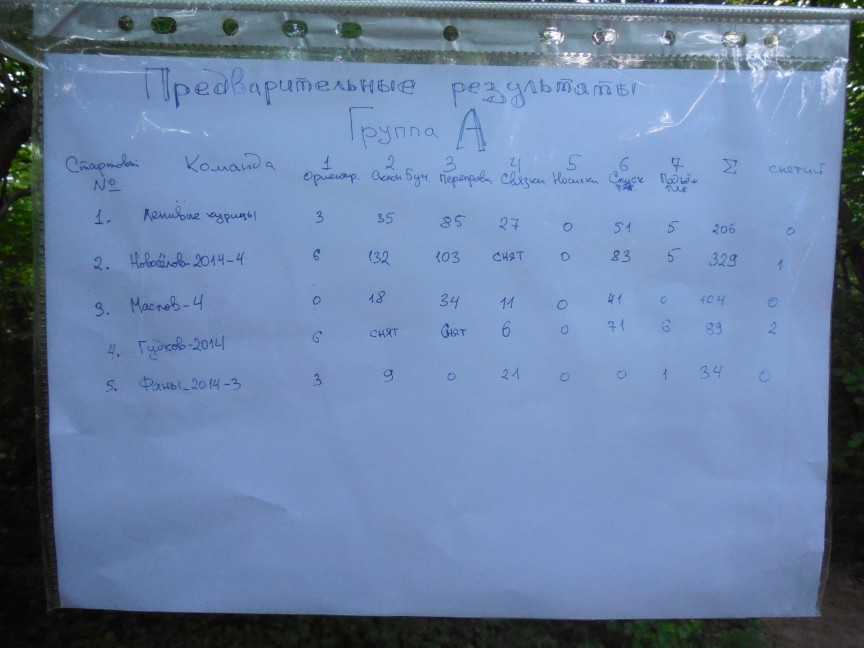 Предварительные результаты
Группа А
Стартовый № Команда 1 Ориентир. 2 Склон Бум. 3 Переправа 4 Связки 5 Носилки 6 Спуск 7 Подъём Σ снятий
1. Ленивые курицы 3 35 85 27 0 51 5 206 0
2. Новосёлов-2014-4 6 132 103 снят 0 83 5 329 1
3. Маслов-4 0 18 34 11 0 41 0 104 0
4. Гудков-2014 6 снят снят 6 0 71 6 89 2
5. Фаны_2014-3 3 9 0 21 0 0 1 34 0